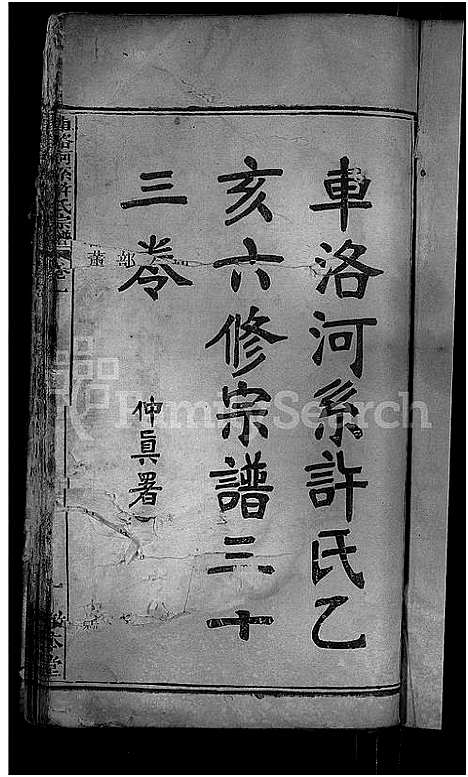 車洛河系許氏乙
亥六修宗譜三十
三卷
仲眞署
FamilySearch